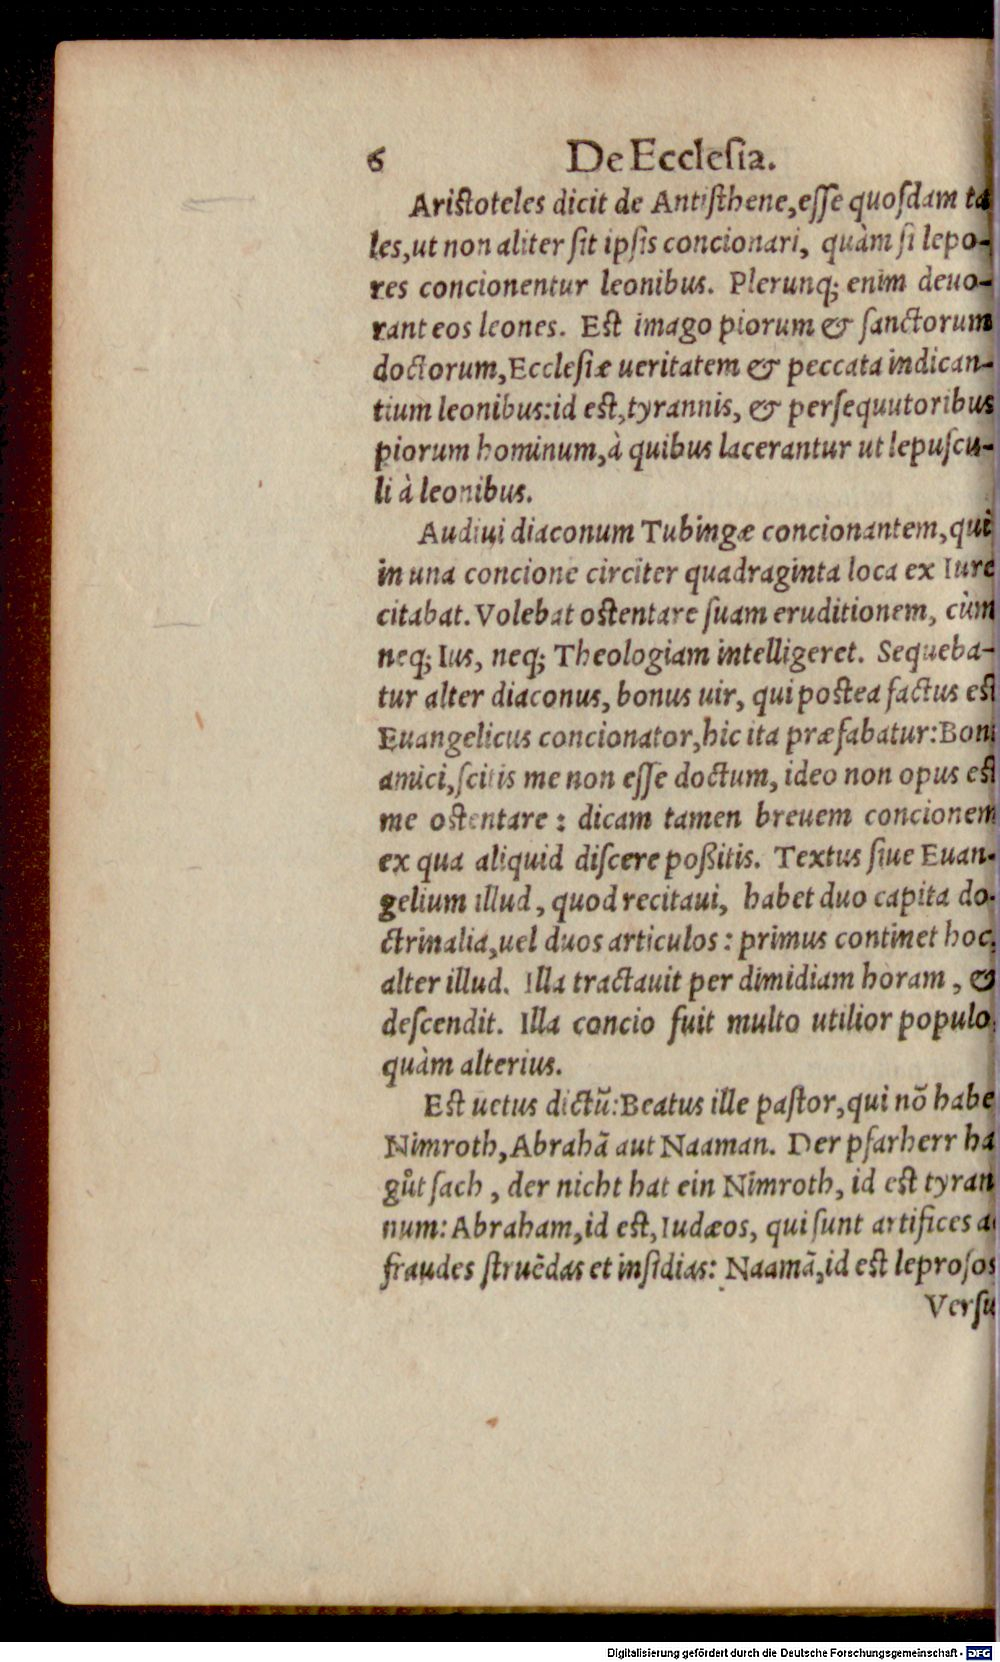 6 De Ecclesia.
Aristoteles dicit de Antisthene, esse quosdam ta
les, ut non aliter sit ipsis concionari, quàm si lepo-
res concionentur leonibus. Plerunq; enim deuo-
rant eos leones. Est imago piorum & sanctorum
doctorum, Ecclesiæ ueritatem & peccata indican-
tium leonibus: id est, tyrannis, & persequutoribus
piorum hominum, à quibus lacerantur ut lepuscu-
li à leonibus.
Audiui diaconum Tubingæ concionantem, qui
in una concione circiter quadraginta loca ex Iure
citabat. Volebat ostentare suam eruditionem, cùm
neq; Ius, neq; Theologiam intelligeret. Sequeba-
tur alter diaconus, bonus uir, qui postea factus est
Euangelicus concionator, hic ita præfabatur: Boni
amici, scitis me non esse doctum, ideo non opus est
me ostentare: dicam tamen breuem concionem
ex qua aliquid discere poßitis. Textus siue Euan-
gelium illud, quod recitaui, habet duo capita do-
ctrinalia, uel duos articulos: primus continet hoc,
alter illud. Illa tractauit per dimidiam horam, &
descendit. Illa concio fuit multo utilior populo,
quàm alterius.
Est uetus dictũ: Beatus ille pastor, qui nõ habe
Nimroth, Abrahã aut Naaman. Der pfarherr ha
gůt sach, der nicht hat ein Nimroth, id est tyran
num: Abraham, id est, Iudæos, qui sunt artifices a
fraudes struẽdas et insidias: Naamã, id est leprosos
Versu
Digitalisierung gefördert durch die Deutsche Forschungsgemeinschaft - DFG